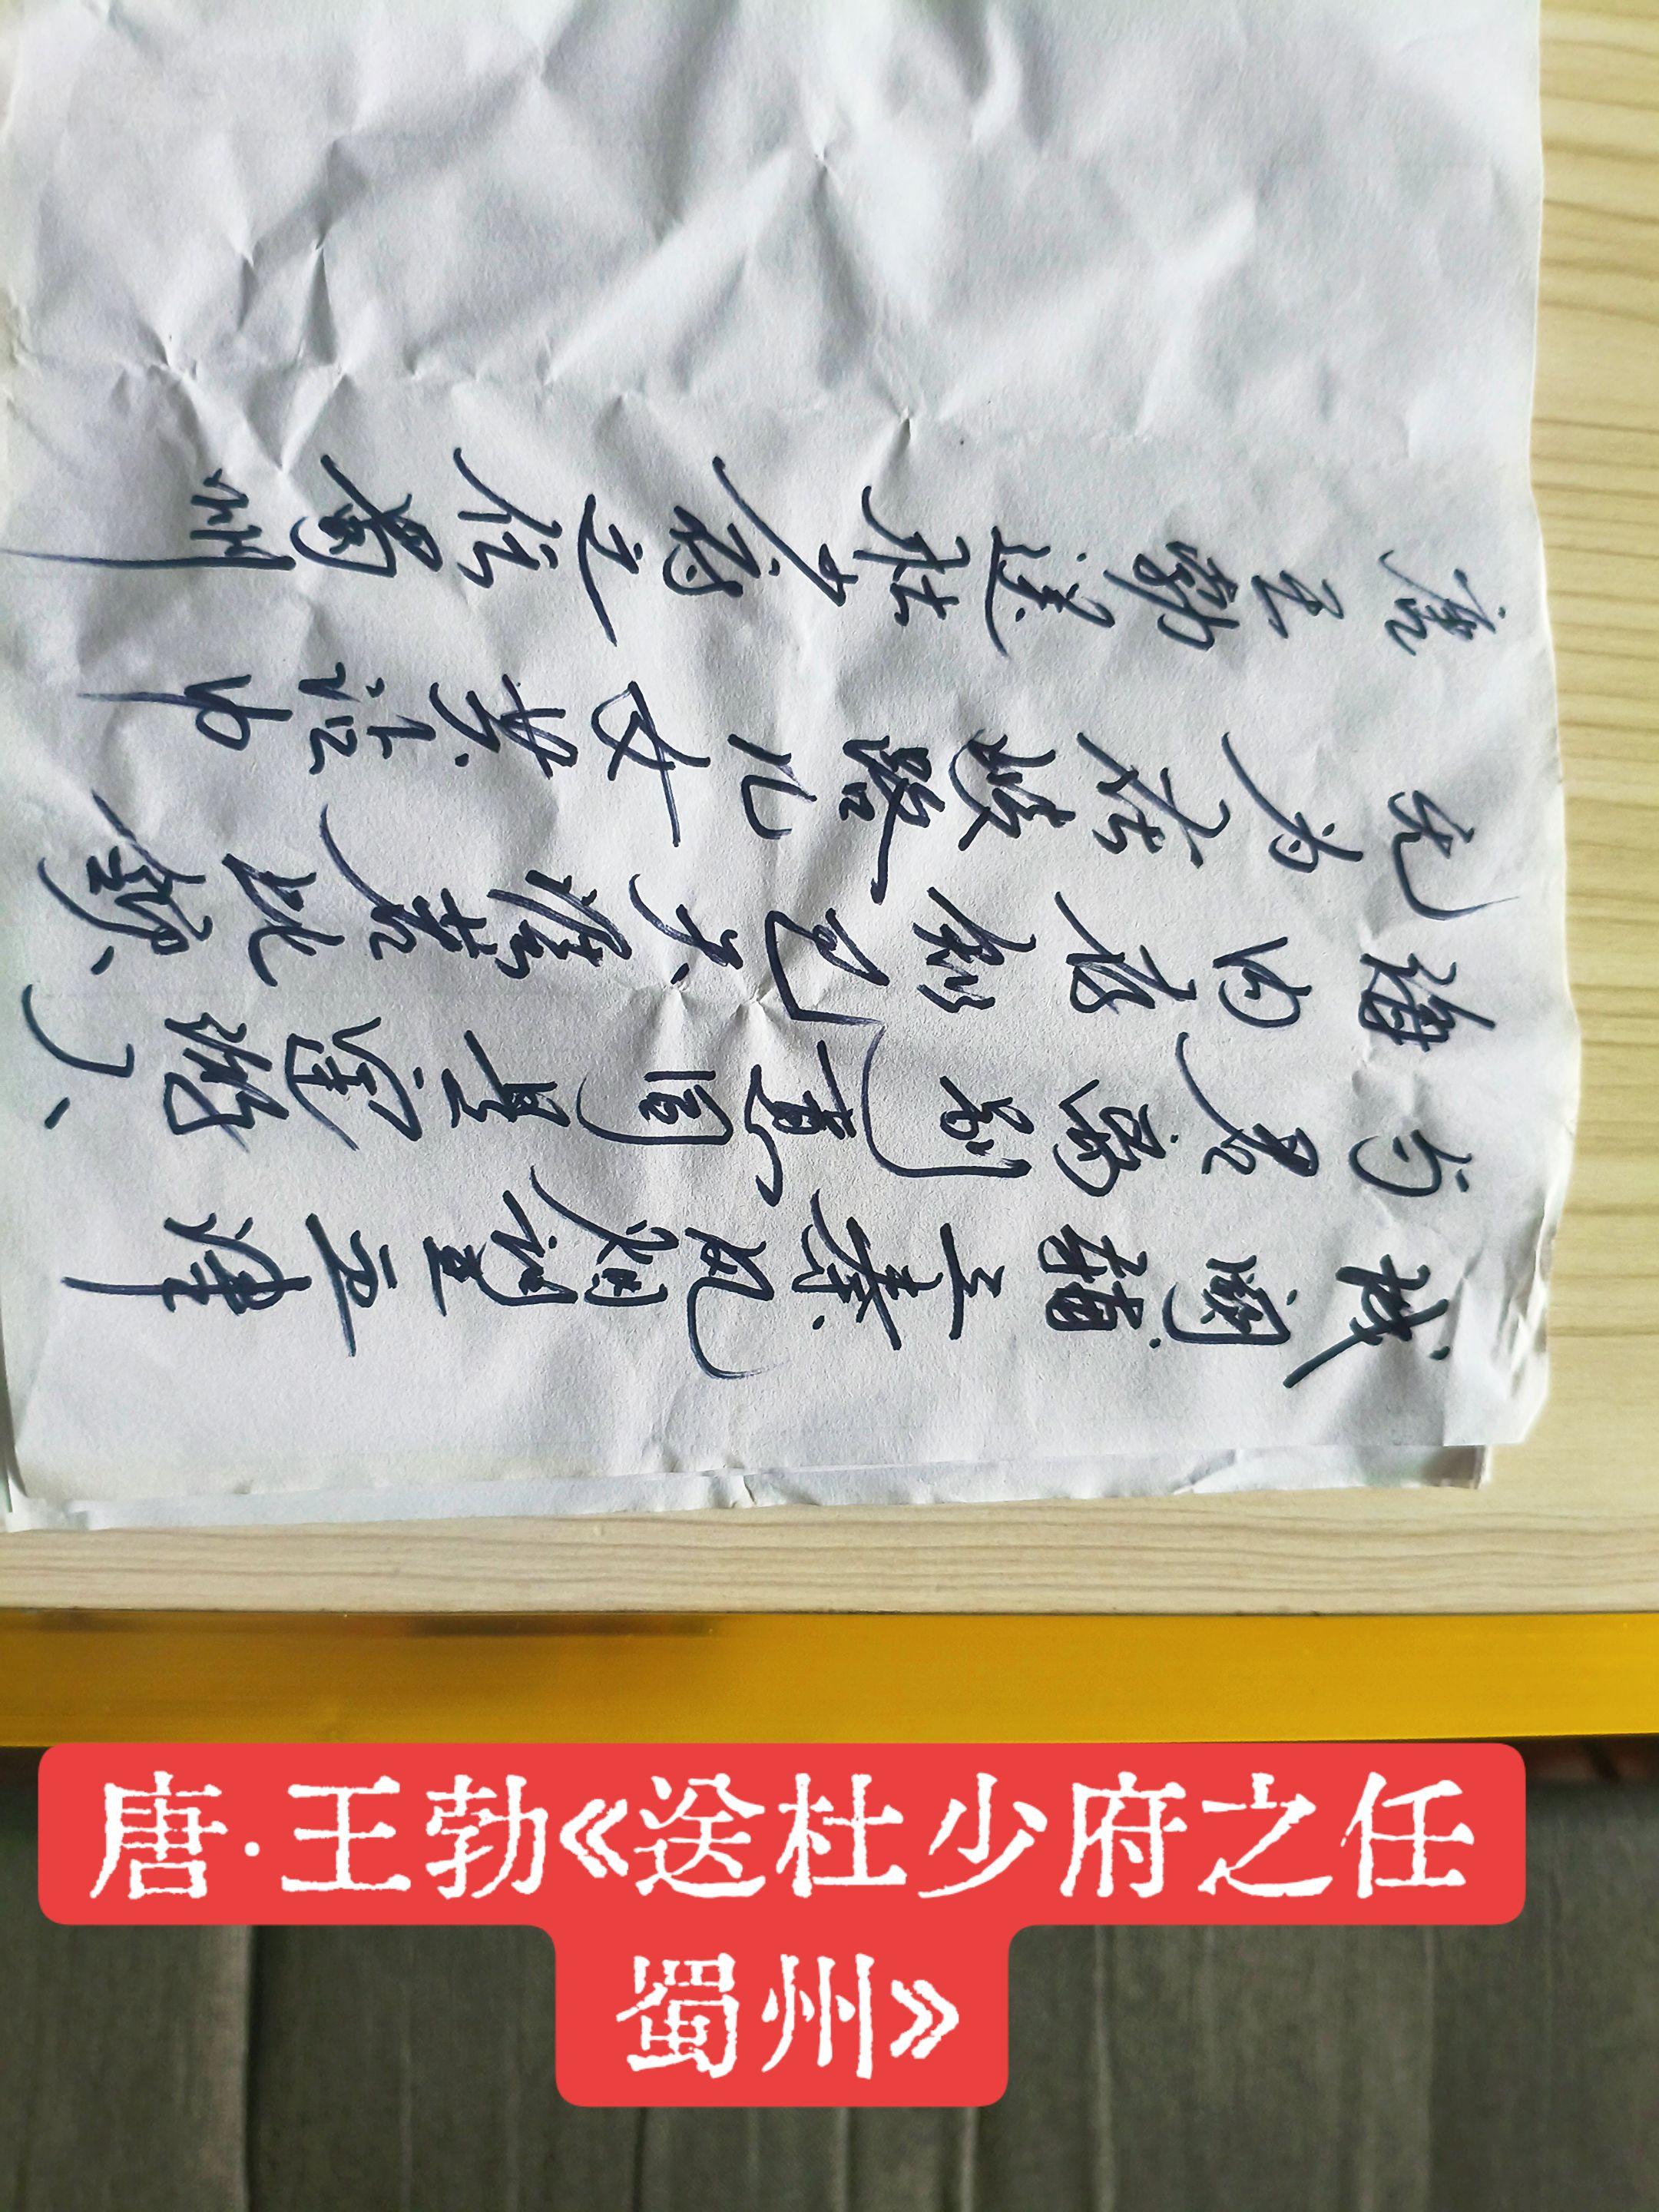 城阙輔三秦风烟望五津
与君离别意同是宦游人
海内存知己天涯若比鄰
无为在歧路儿女共沾巾
唐王勃送杜少府之任蜀州
唐·王勃《送杜少府之任
蜀州》